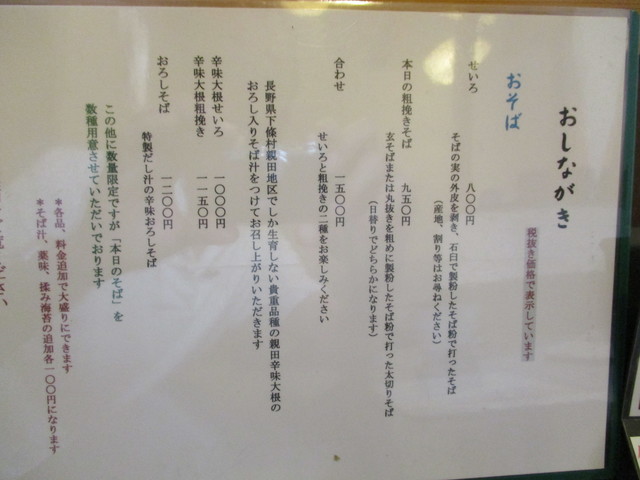 おしながき
税抜き価格で表示しています
おそば
せいろ　八〇〇円
そばの実の外皮を剥き、石臼で製粉したそば粉で打ったそば
（産地、割り等はお尋ねください）
本日の粗挽きそば　九五〇円
玄そばまたは丸抜きを粗めに製粉したそば粉で打った太切りそば
（日替りでどちらかになります）
合わせ　一五〇〇円
せいろと粗挽きの二種をお楽しみください
長野県下條村親田地区でしか生育しない貴重品種の親田辛味大根の
おろし入りそば汁をつけてお召し上がりいただきます
辛味大根せいろ　一〇〇〇円
辛味大根粗挽き　一一五〇円
おろしそば　一二〇〇円
特製だし汁の辛味おろしそば
この他に数量限定ですが「本日のそば」を
数種用意させていただいております
＊各品、料金追加で大盛りにできます
＊そば汁、薬味、揉み海苔の追加各一〇〇円になります